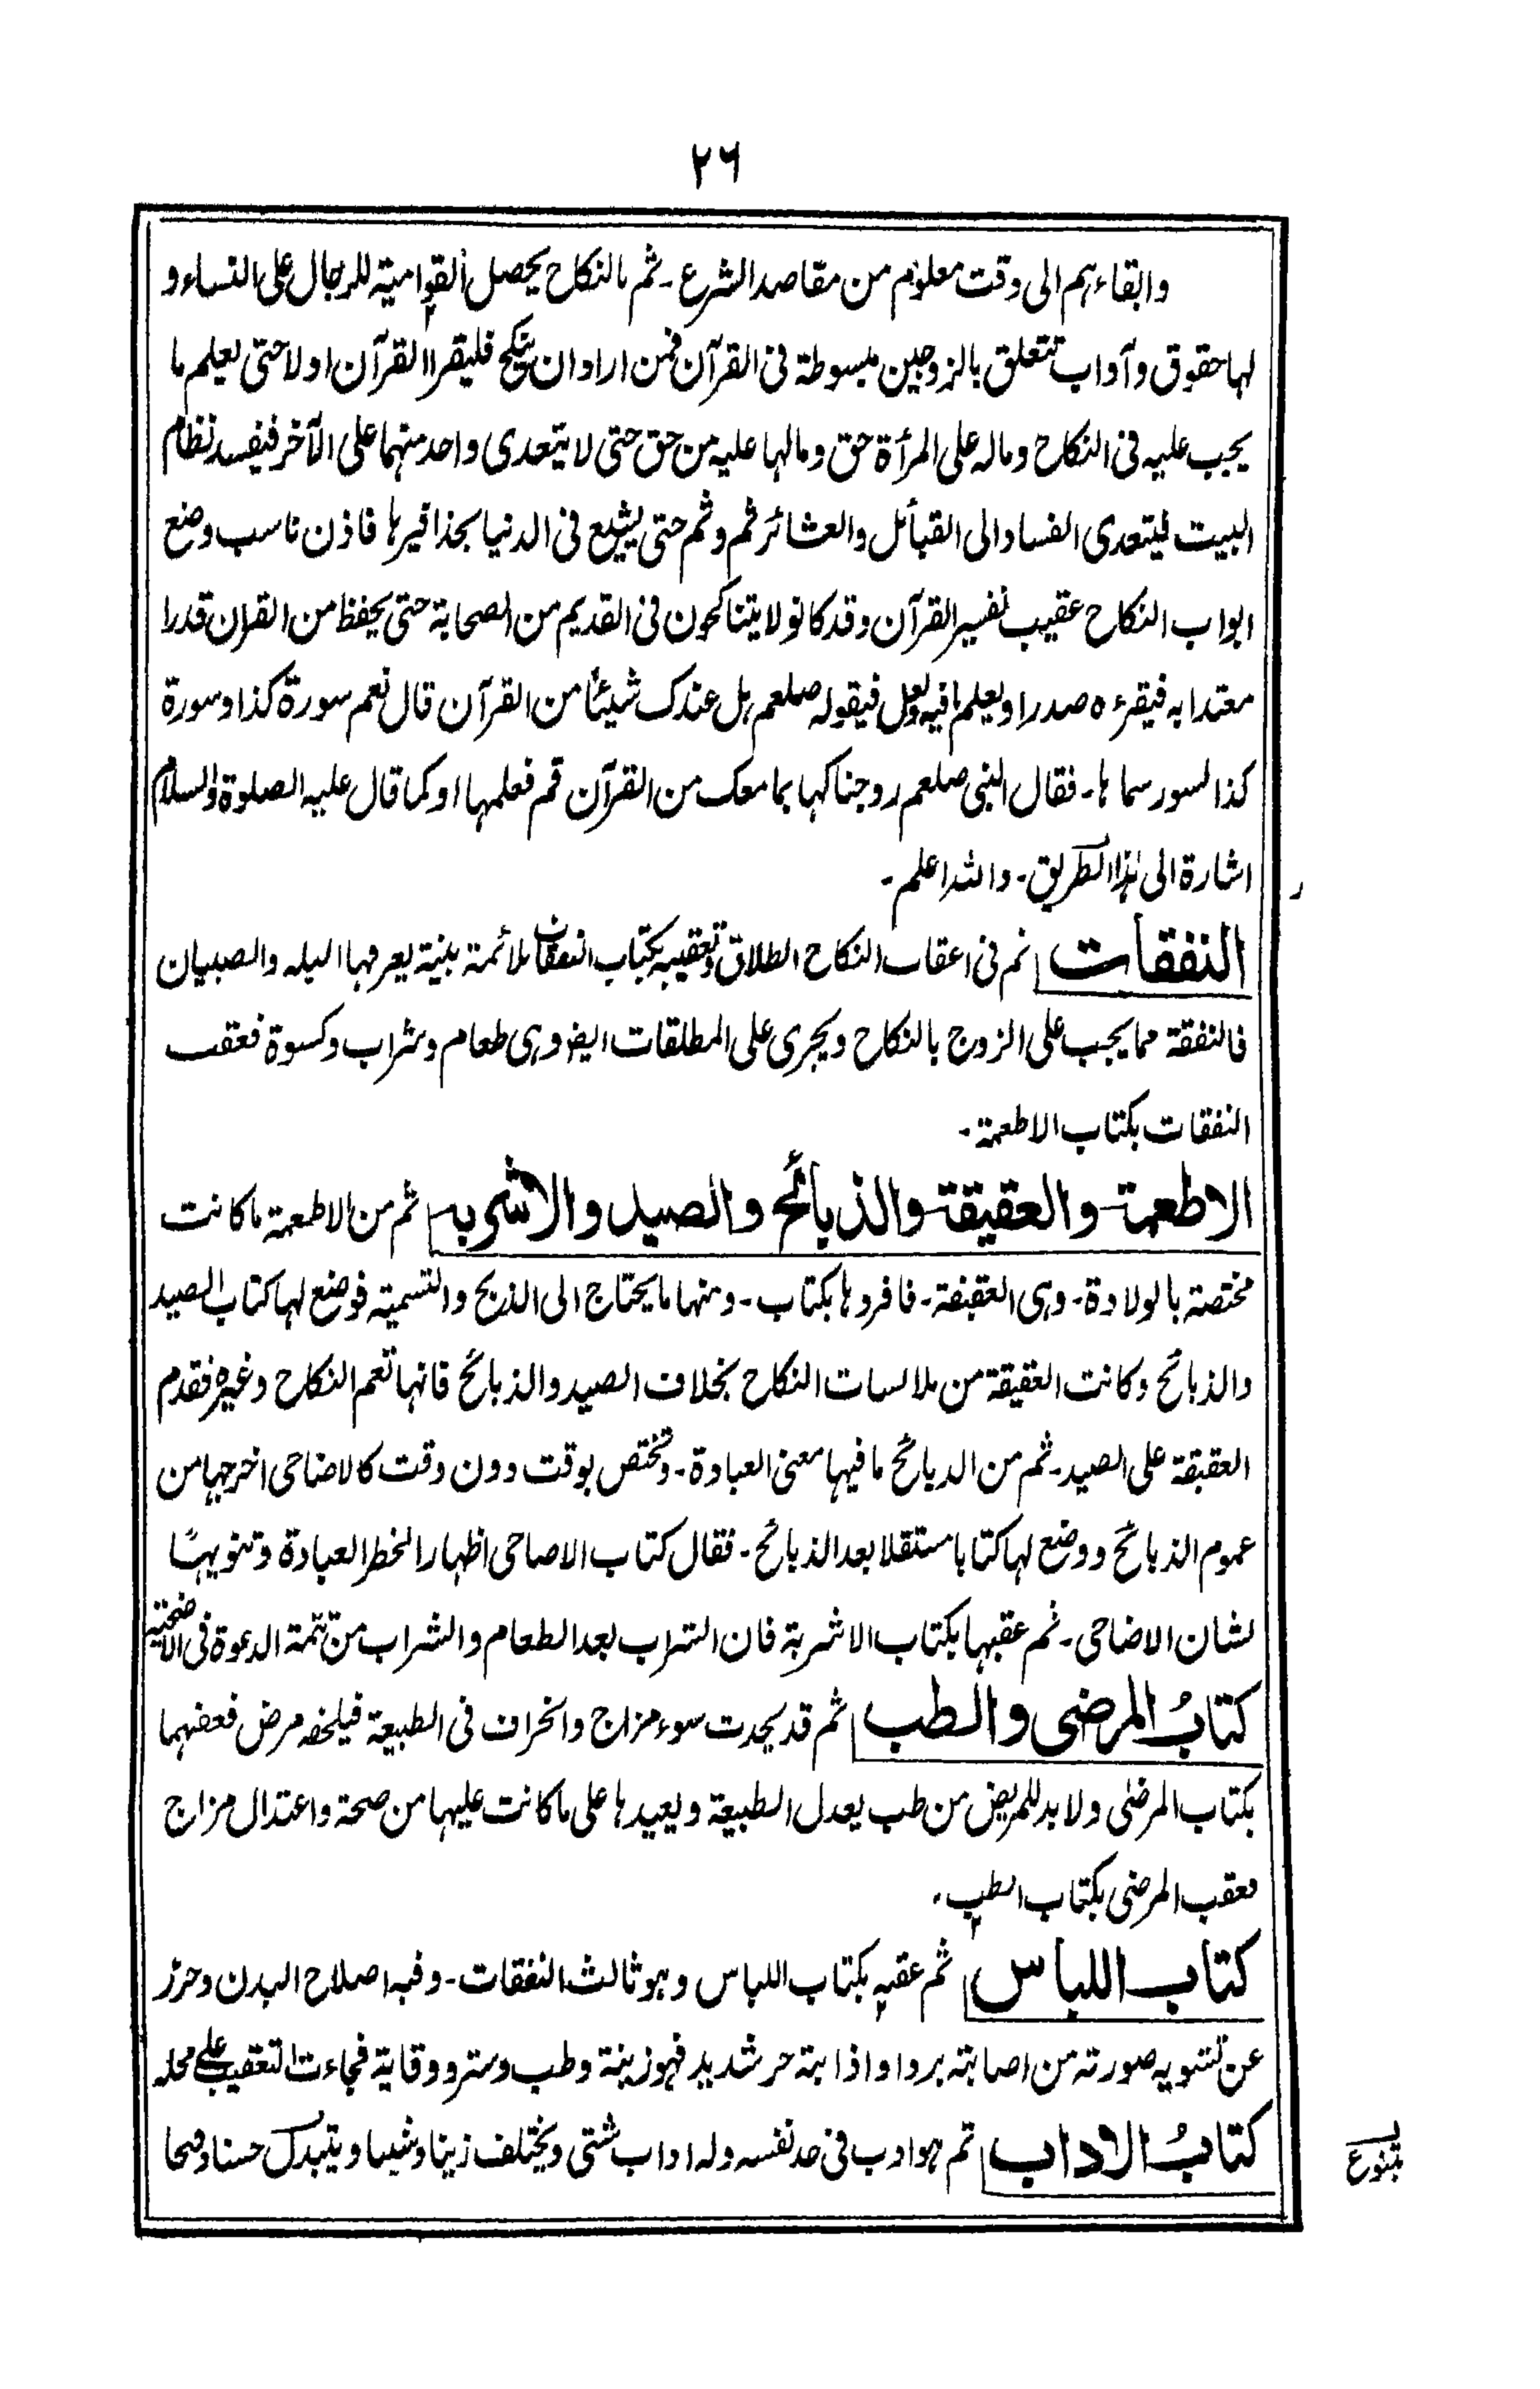 ۲۶
وابقاءہم الی وقت معلوم من مقاصد الشرع۔ ثم بالنکاح یحصل القوامیۃ للرجال علی النساء و
لہا حقوق وآداب تتعلق بالزوجین مبسوطۃ فی القرآن فمن اراد ان ینکح فلیقرا القرآن اولا حتی یعلم ما
یجب علیہ فی النکاح ومالہ علی المرأۃ حق ومالہا علیہ من حق حتی لا یتعدی واحد منہما علی الآخر فیفسد نظام
البیت فیتعدی الفساد الی القبائل والعشائر ثم وثم حتی یشیع فی الدنیا بحذافیرہا فاذن ناسب وضع
ابواب النکاح عقیب تفسیر القرآن وقد کانو لا یتناکحون فی القدیم من الصحابۃ حتی یحفظ من القران قدرا
معتدا بہ فیقرءہ صدرا ویعلم مافیہ فیقولہ صلعم ہل عندک شیئا من القرآن قال نعم سورۃ کذا وسورۃ
کذا لسور سماہا۔ فقال النبی صلعم زوجناکہا بما معک من القرآن قم فعلمہا اوکما قال علیہ الصلوۃ والسلام
اشارۃ الی ہذا الطریق۔ واللہ اعلم۔
ر
النفقات ثم فی اعقاب النکاح الطلاق وتعقیبہ بکتاب النفقات ملائمۃ بینۃ یعرفہا البلہ والصبیان
فالنفقۃ مما یجب علی الزوج بالنکاح ویجری علی المطلقات ایضا وہی طعام وشراب وکسوۃ فعقب
النفقات بکتاب الاطعمۃ۔
الاطعمۃ والعقیقۃ والذبائح والصید والاشربہ ثم من الاطعمۃ ماکانت
مختصۃ بالولادۃ۔ وہی العقیقۃ۔ فافردہا بکتاب۔ ومنہا مایحتاج الی الذبح والتسمیۃ فوضع لہا کتاب الصید
والذبائح وکانت العقیقۃ من ملابسات النکاح بخلاف الصید والذبائح فانہا تعم النکاح وغیرہ فقدم
العقیقۃ علی الصید۔ ثم من الذبائح مافیہا معنی العبادۃ۔ وتختص بوقت دون وقت کالاضاحی اخرجہا من
عموم الذبائح ووضع لہا کتابا مستقلا بعد الذبائح۔ فقال کتاب الاضاحی اظہارا لخطر العبادۃ وتنویہًا
لشان الاضاحی۔ ثم عقبہا بکتاب الاشربۃ فان الشراب بعد الطعام والشراب من تتمۃ الدعوۃ فی الاضحیۃ
کتابُ المرضی والطب ثم قد یحدث سوء مزاج وانحراف فی الطبیعۃ فیلحقہ مرض فعقبہما
بکتاب المرضٰی ولابد للمریض من طب یعدل الطبیعۃ ویعیدہا علی ماکانت علیہا من صحۃ واعتدال مزاج
فعقب المرضی بکتاب الطب۔
کتاب اللباس ثم عقبہ بکتاب اللباس وہو ثالث النفقات۔ وفیہ اصلاح البدن وحرز
عن تشویہ صورتہ من اصابتہ بردا واذابتہ حر شدید فہو زینۃ وطب وستر ووقایۃ فجاءت التعقیب علی محلہ
کتابُ الاداب ثم ہو ادب فی حد نفسہ ولہ اداب شتی ویختلف زینا وشینا ویتبدل حسنا وقبحا
یتنوع